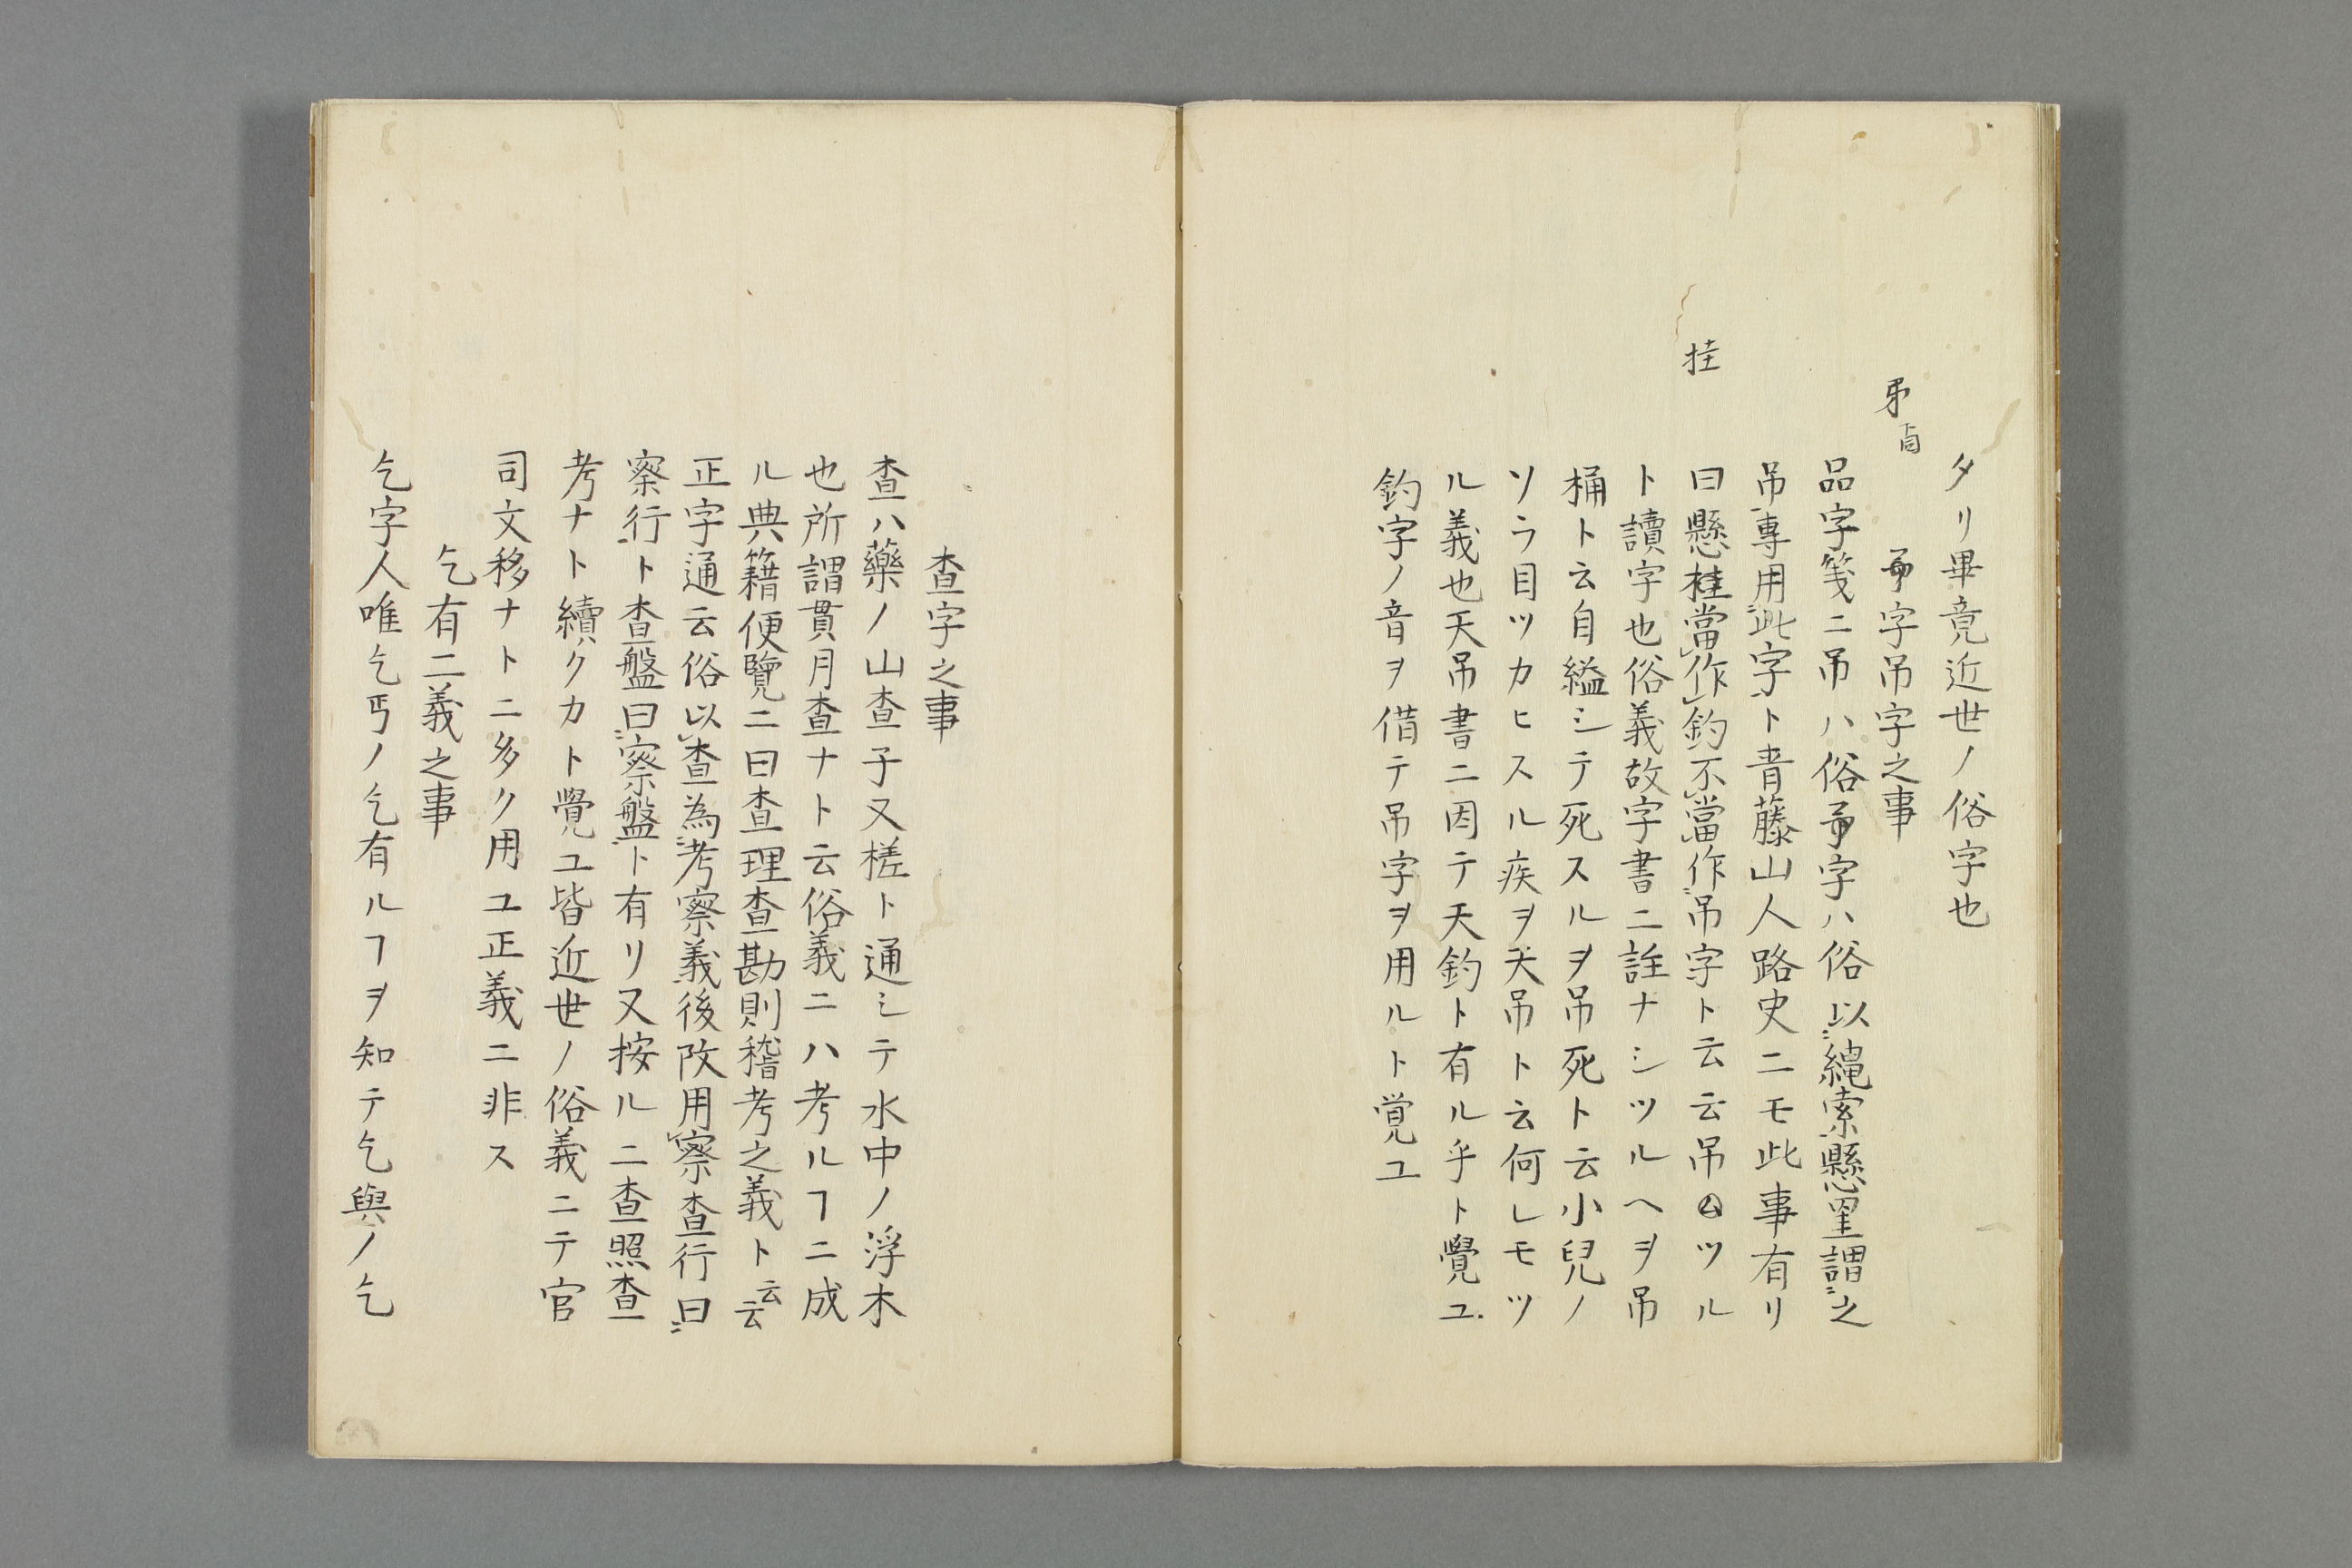 タリ畢竟近世ノ俗字也
弔首
字吊字之事
品字箋ニ吊ハ俗字ハ俗以繩索懸罣謂之
吊專用此字ト青藤山人路史ニモ此事有リ
挂
曰懸桂當作釣不當作吊字ト云云吊ハツル
ト讀字也俗義故字書ニ註ナシツルヘヲ吊
桶ト云自縊シテ死スルヲ吊死ト云小兒ノ
ソラ目ツカヒスル疾ヲ天吊ト云何レモツ
ル義也天吊書ニ因テ天釣ト有ル乎ト覺ユ
釣字ノ音ヲ借テ吊字ヲ用ルト覚ユ
査字之事
査ハ藥ノ山査子又槎ト通シテ水中ノ浮木
也所謂貫月査ナト云俗義ニハ考ルヿニ成
ル典籍便覽ニ曰査理査勘則稽考之義ト云云
正字通云俗以査為考察義後改用察査行曰
察行ト査盤曰察盤ト有リ又按ルニ査照査
考ナト續クカト覺ユ皆近世ノ俗義ニテ官
司文移ナトニ多ク用ユ正義ニ非ス
乞有二義之事
乞字人唯乞丐ノ乞有ルヿヲ知テ乞與ノ乞